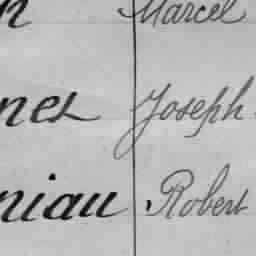 n Marcel
nes Joseph
niau Robert